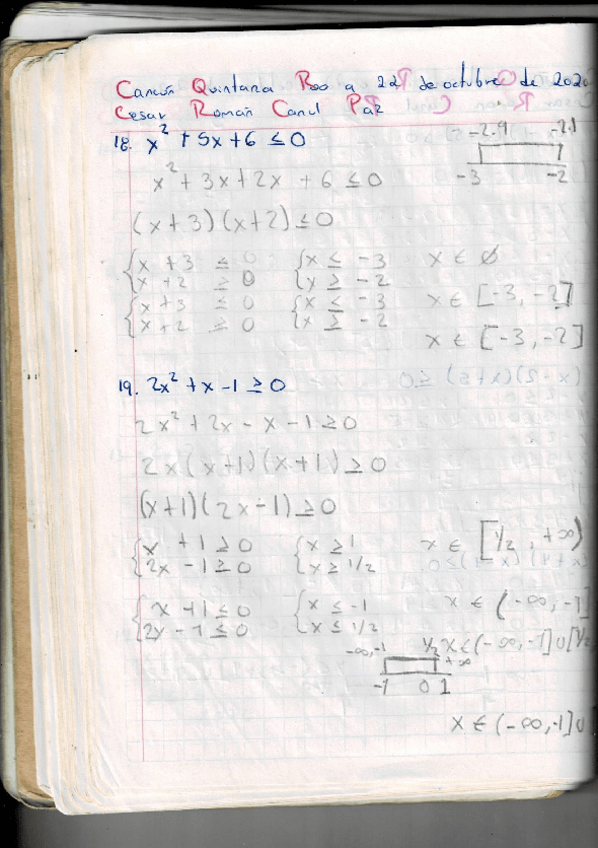 Cancún Quintana Roo a 22 de octubre de 2020
Cesar Román Canul Paz
18. x² + 5x + 6 ≤ 0
-2.9 -2.1
-3 -2
x² + 3x + 2x + 6 ≤ 0
(x + 3)(x + 2) ≤ 0
x + 3 ≤ 0 x ≤ -3 x ∈ ∅
x + 2 ≥ 0 x ≥ -2
x + 3 ≤ 0 x ≤ -3 x ∈ [-3, -2]
x + 2 ≤ 0 x ≥ -2
x ∈ [-3, -2]
19. 2x² + x - 1 ≥ 0
2x² + 2x - x - 1 ≥ 0
2x(x+1)(x+1) ≥ 0
(x+1)(2x-1) ≥ 0
x + 1 ≥ 0 x ≥ 1 x ∈ [1/2, +∞)
2x - 1 ≥ 0 x ≥ 1/2
x + 1 ≤ 0 x ≤ -1 x ∈ (-∞, -1]
2x - 1 ≤ 0 x ≤ 1/2
-∞,-1 1/2 x ∈ (-∞, -1] ∪ [1/2
+∞
-1 0 1
x ∈ (-∞, -1] ∪